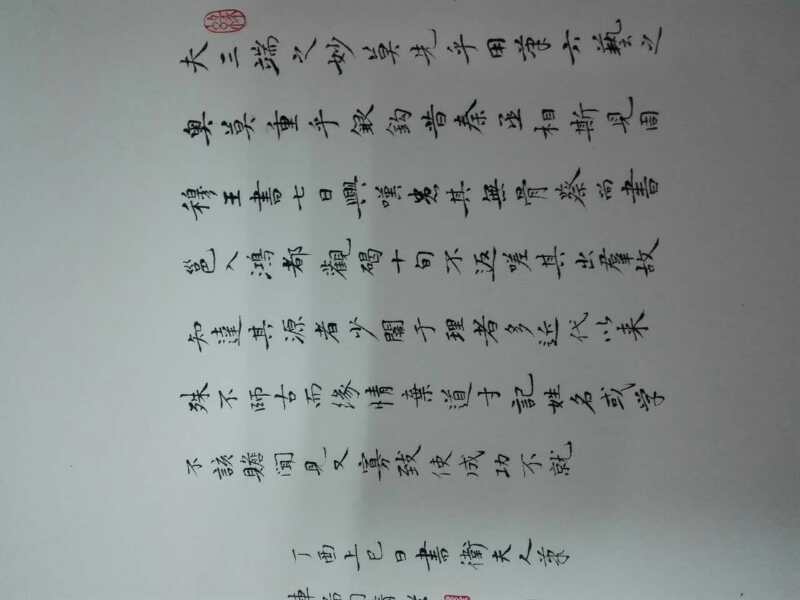 夫三端之妙莫先乎用筆六藝之
奥莫重乎銀鈎昔秦丞相斯見周
穆王書七日興嘆患其無骨蔡尚書
邕入鴻都觀碣十旬不返嗟其出羣故
知達其源者少闇于理者多近代以来
殊不師古而緣情棄道才記姓名或学
不該贍聞見又寡致使成功不就
丁酉上巳日書衛夫人筆